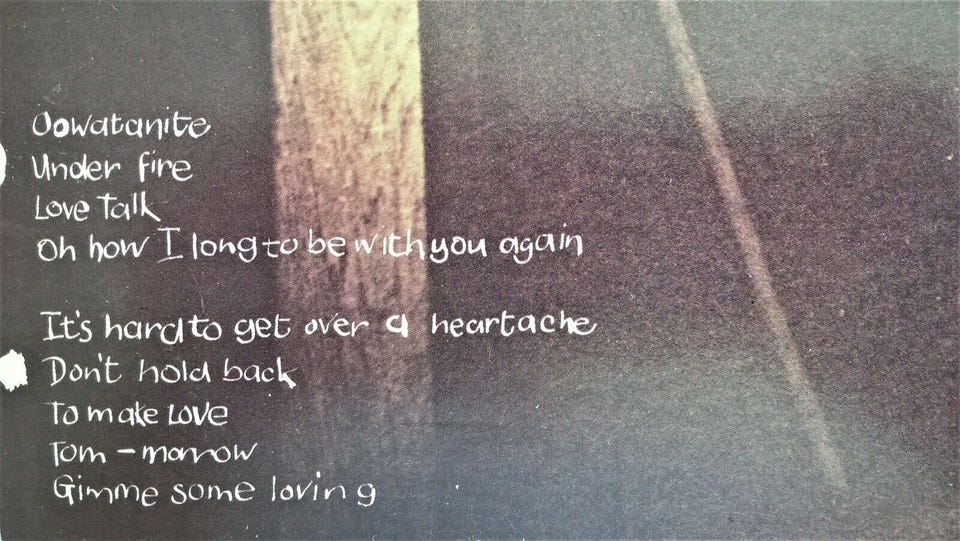 Oowatanite
Under fire
Love Talk
Oh how I long to be with you again
It's hard to get over a heartache
Don't hold back
To make LOVE
Tom - morrow
Gimme some loving